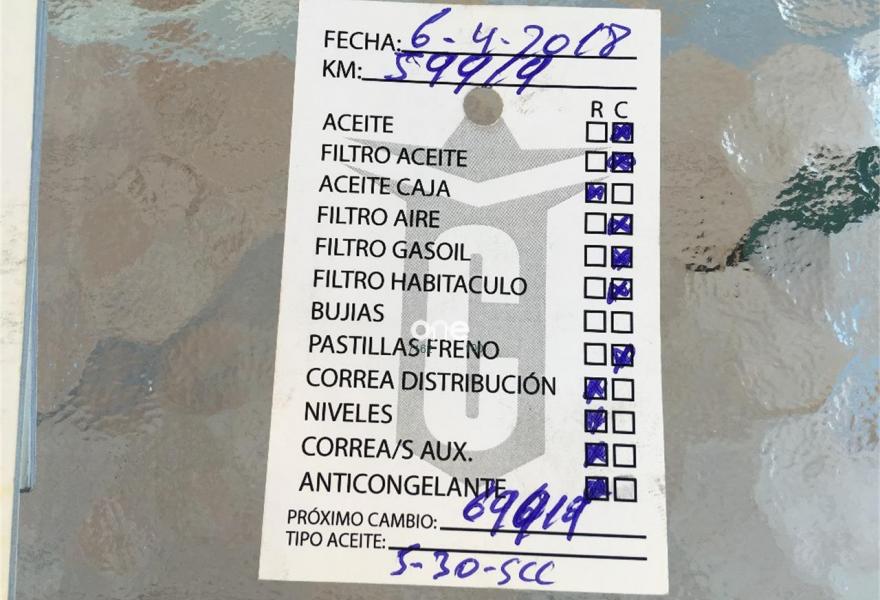 FECHA: 6-4-2018
KM: 59919
R C
ACEITE
FILTRO ACEITE
ACEITE CAJA
FILTRO AIRE
FILTRO GASOIL
FILTRO HABITACULO
BUJIAS
one
PASTILLAS FRENO
CORREA DISTRIBUCIÓN
NIVELES
CORREA/S AUX.
ANTICONGELANTE
PRÓXIMO CAMBIO: 69919
TIPO ACEITE:
5-30-SCC